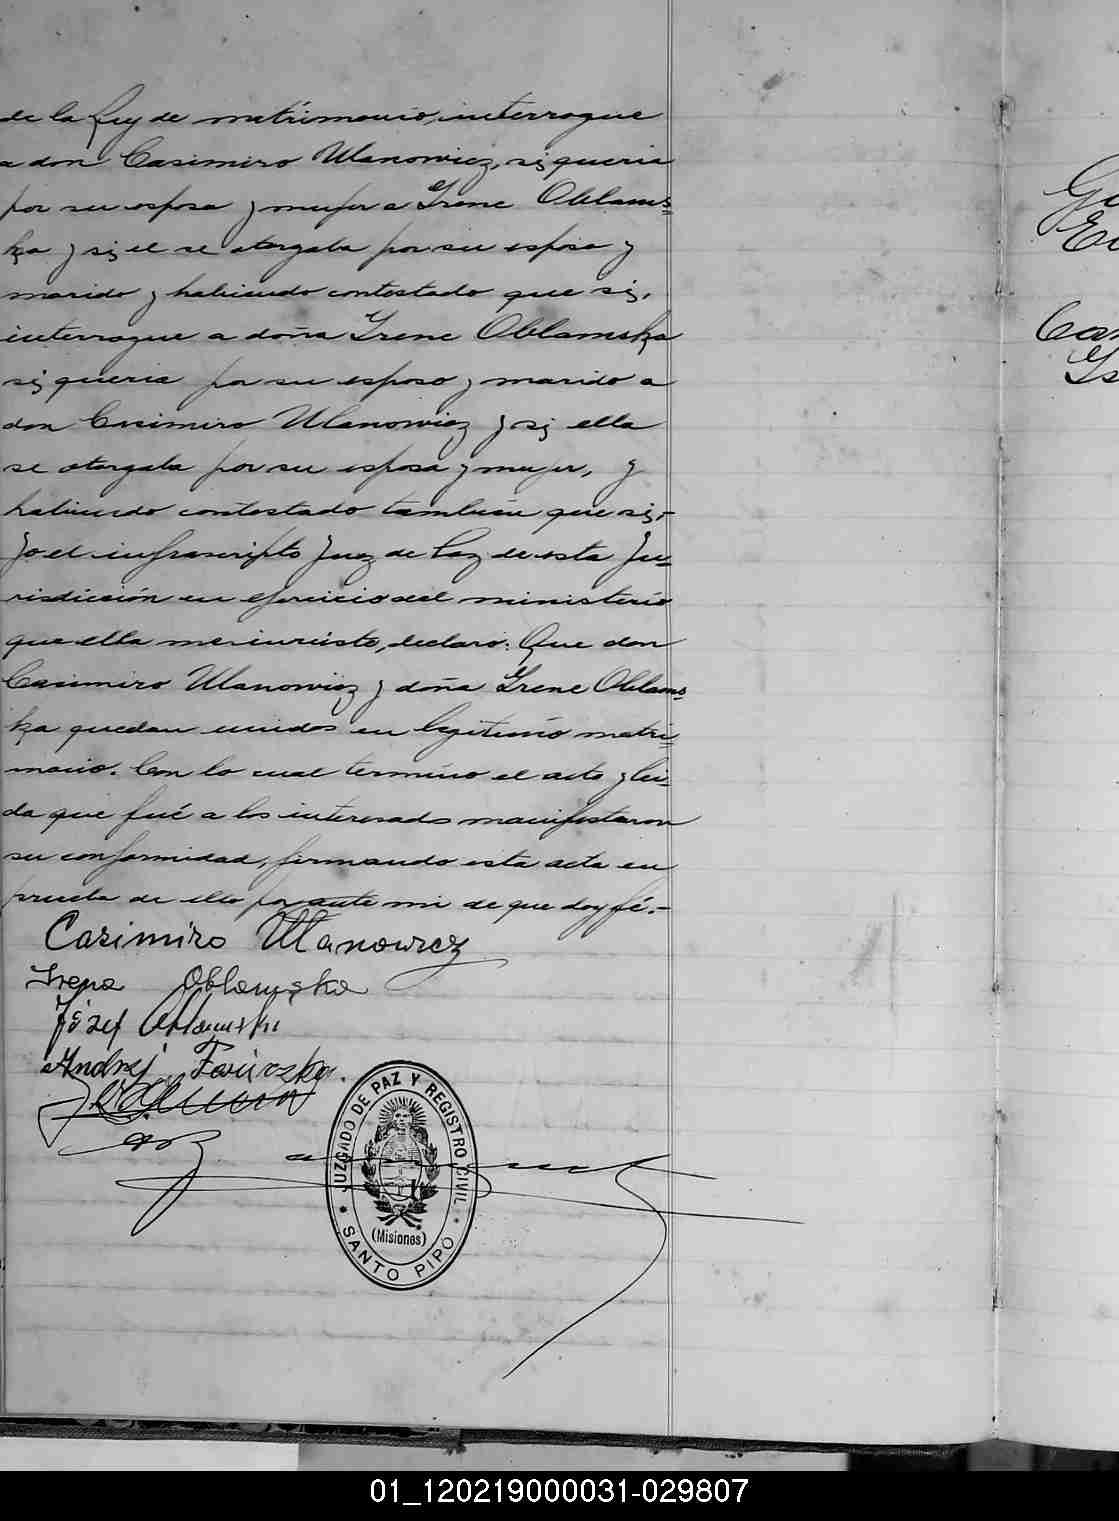 de la Ley de matrimonio, interrogue
a don Casimiro Ulanowicz, si queria
por su esposa y mujer a Irene Oblams=
ka y si el se otorgaba por su esposo y
marido y habiendo contestado que si,
interrogue a doña Irene Oblamska
si queria por su esposo y marido a
don Casimiro Ulanowicz y si ella
se otorgaba por su esposa y mujer, y
habiendo contestado tambien que si,-
Yo el infrascripto Juez de Paz de esta Ju=
risdicción en ejercicio del ministerio
que ella me inviste, declaro: Que don
Casimiro Ulanowicz y doña Irene Oblams=
ka quedan unidos en legitimo matri=
monio. Con lo cual termino el acto y lei=
da que fué a los interesados manifestaron
su conformidad, firmando esta acta en
prueba de ello por ante mi de que doy fé.-
Casimiro Ulanowicz
Irena Oblamska
Józef Oblamski
Andrzej
JUZGADO DE PAZ Y REGISTRO CIVIL
(Misiones)
SANTO PIPO
Can
Is
01_120219000031-029807